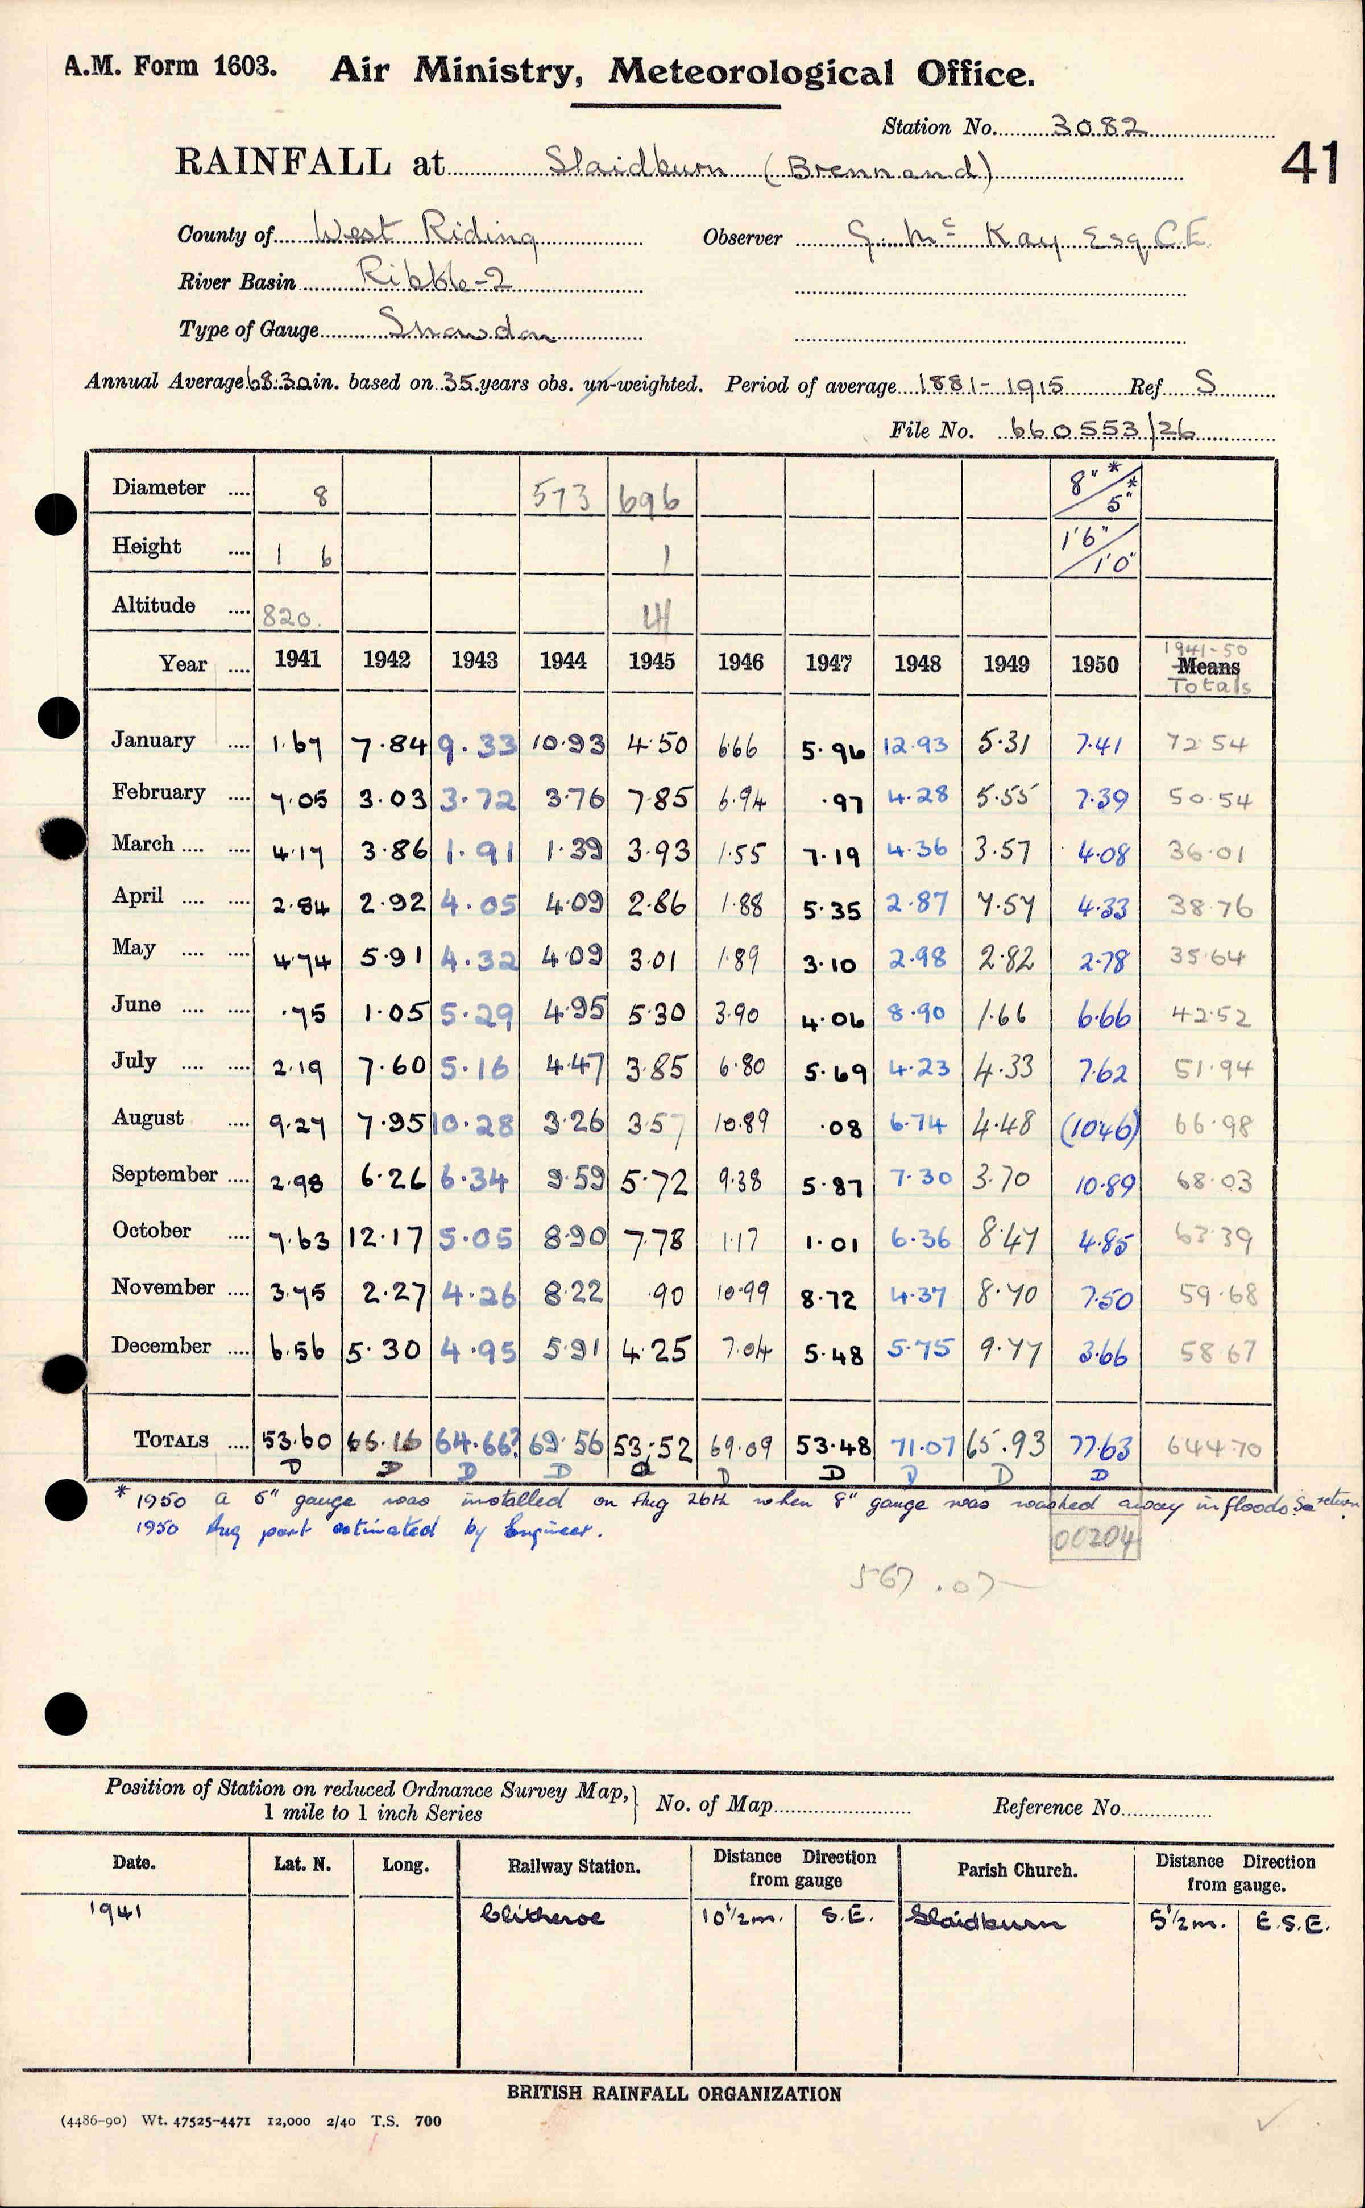 A.M. Form 1603. Air Ministry, Meteorological Office.
Station No. 3082
41
RAINFALL at Slaidburn (Brennand)
County of West Riding Observer G. Mc Kay Esq C.E.
River Basin Ribble-2
Type of Gauge Snowdon
Annual Average 68.30 in. based on 35 years obs. un-weighted. Period of average 1881-1915 Ref S
File No. 660553/26
Diameter .... 8 573 696 8" * / 5" *
Height .... 1 6 1 1'6" / 1'0"
Altitude .... 820.
Year .... 1941 1942 1943 1944 1945 1946 1947 1948 1949 1950 1941-50 Means Totals
January .... 1.67 7.84 9.33 10.93 4.50 6.66 5.96 12.93 5.31 7.41 72.54
February .... 7.05 3.03 3.72 3.76 7.85 6.94 .97 4.28 5.55 7.39 50.54
March .... .... 4.17 3.86 1.91 1.39 3.93 1.55 7.19 4.36 3.57 4.08 36.01
April .... .... 2.84 2.92 4.05 4.09 2.86 1.88 5.35 2.87 7.57 4.33 38.76
May .... .... 4.74 5.91 4.32 4.09 3.01 1.89 3.10 2.98 2.82 2.78 35.64
June .... .... .75 1.05 5.29 4.95 5.30 3.90 4.06 8.90 1.66 6.66 42.52
July .... .... 2.19 7.60 5.16 4.47 3.85 6.80 5.69 4.23 4.33 7.62 51.94
August .... 9.27 7.95 10.28 3.26 3.57 10.89 .08 6.74 4.48 (10.46) 66.98
September .... 2.98 6.26 6.34 9.59 5.72 9.38 5.87 7.30 3.70 10.89 68.03
October .... 7.63 12.17 5.05 8.90 7.78 1.17 1.01 6.36 8.47 4.85 63.39
November .... 3.75 2.27 4.26 8.22 .90 10.99 8.72 4.37 8.70 7.50 59.68
December .... 6.56 5.30 4.95 5.91 4.25 7.04 5.48 5.75 9.77 3.66 58.67
TOTALS .... 53.60 66.16 64.66? 69.56 53.52 69.09 53.48 71.07 65.93 77.63 644.70
D D D D D D D D D
* 1950 a 5" gauge was installed on Aug 26th when 8" gauge was washed away in floods. See return
1950 Aug part estimated by Engineer.
00204
567.07
Position of Station on reduced Ordnance Survey Map, 1 mile to 1 inch Series } No. of Map Reference No.
Date. Lat. N. Long. Railway Station. Distance Direction from gauge Parish Church. Distance Direction from gauge.
1941 Clitheroe 10½m. S.E. Slaidburn 5½m. E.S.E.
BRITISH RAINFALL ORGANIZATION
(4486-90) Wt. 47525-4471 12,000 2/40 T.S. 700